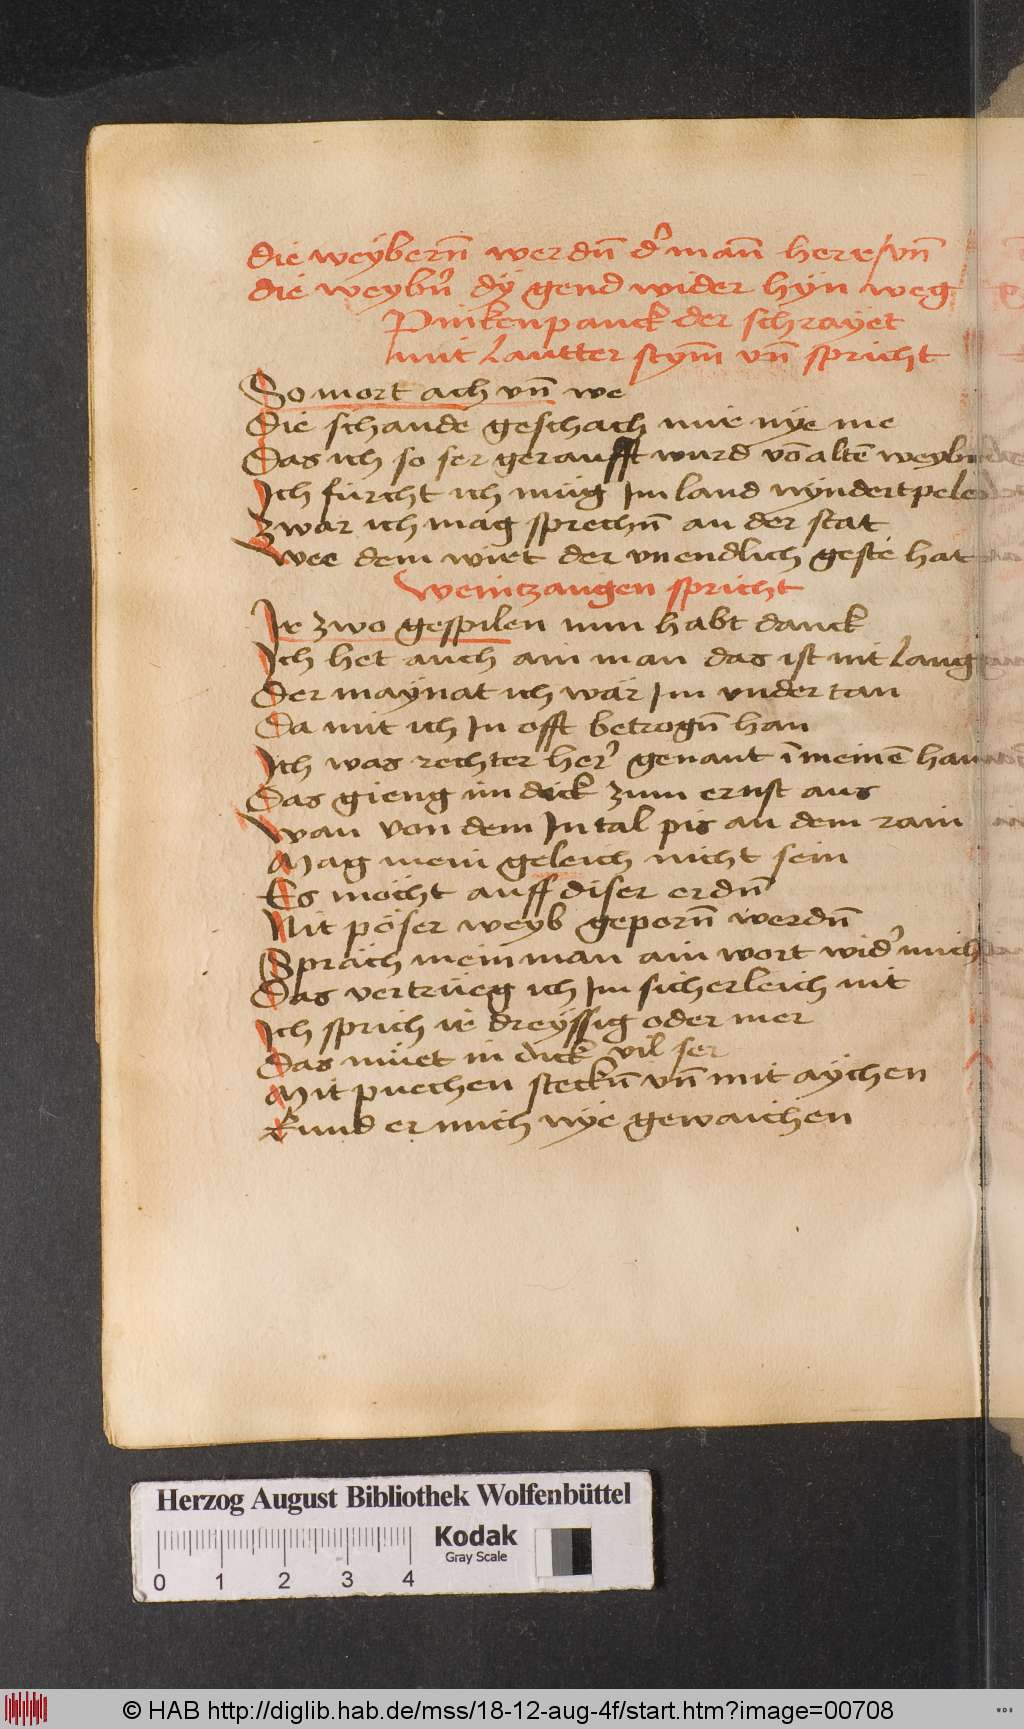 die weybern̄ werdn̄ d' man̄ here / vn̄
die weybn̄ dÿ gend wider hÿn weg
Pinkenpanck der schrayet
mit lautter stym̄ vn̄ spricht
So mort ach vn̄ we
Die schande geschach mir nye me
Das ich so ser geraufft wurd vō altē
Ich fürcht ich müg Im land nyndert
Zwar ich mag sprechn̄ an der stat
Wee dem wirt der vnendlich geste hat
Weintzangen spricht
Ir zwo gespilen nun habt danck
Ich het auch ain man das ist nit lang
Der maynat ich wär Im vndertan
Da mit ich In offt betrogn̄ han
Ich was rechter her' genant ī meinē
Das gieng im dick zum ernst aus
Wan von dem Intal pis an dem rain
Mag mein geleich nicht sein
Es möcht auff diser erdn̄
Nit pöser weyb geporn̄ werdn̄
Spräch mein man ain wort wid' mich
Das vertrüeg ich Im sicherleich nit
Ich sprich ir dreyssig oder mer
Das müet in dick vil ser
Mit puechen steckn̄ vn̄ mit aychen
Kund er mich nye gewaichen
Herzog August Bibliothek Wolfenbüttel
Kodak
Gray Scale
0 1 2 3 4
© HAB http://diglib.hab.de/mss/18-12-aug-4f/start.htm?image=00708